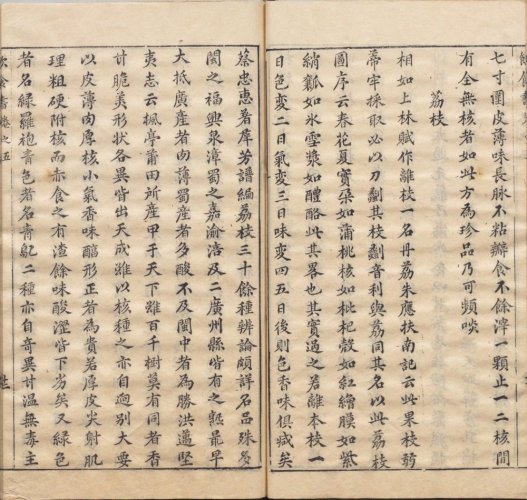 七寸圍皮薄味長脉不粘瓣食不餘滓一顆止一二核間
有全無核者如此方為珍品乃可頻啖
荔枝
相如上林賦作離枝一名丹荔朱應扶南記云此果枝弱
蒂牢採取必以刀劙其枝劙音利與荔同其名以此荔枝
圖序云春花夏實朶如蒲桃核如枇杷殼如紅繒膜如紫
綃瓤如氷雪漿如醴酪此其畧也其實過之若離本枝一
日色変二日氣変三日味変四五日後則色香味俱戚矣
蔡忠惠著荔芳譜緬荔枝三十餘種辨論頗詳名品殊多
閩之福興泉漳蜀之嘉渝涪及二廣州縣皆有之熟最早
大抵廣産者肉薄蜀産者多酸不及閩中者為勝洪邁堅
夷志云楓亭莆田所産甲于天下雖百千樹莫有同者香
甘脆美形狀各異皆出天成雖以核種之亦自迥别大要
以皮薄肉厚核小氣香味醕形正者為貴若厚皮尖射肌
理粗硬附核而赤食之有渣餘味酸澀皆下劣矣又緑色
者名緑羅袍青色者名青虬二種亦自奇異甘温無毒主
飲食書卷之五